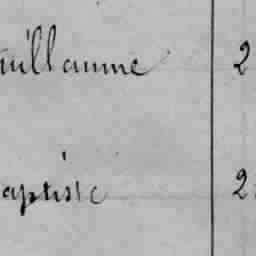 uillaume 2
aptiste 2